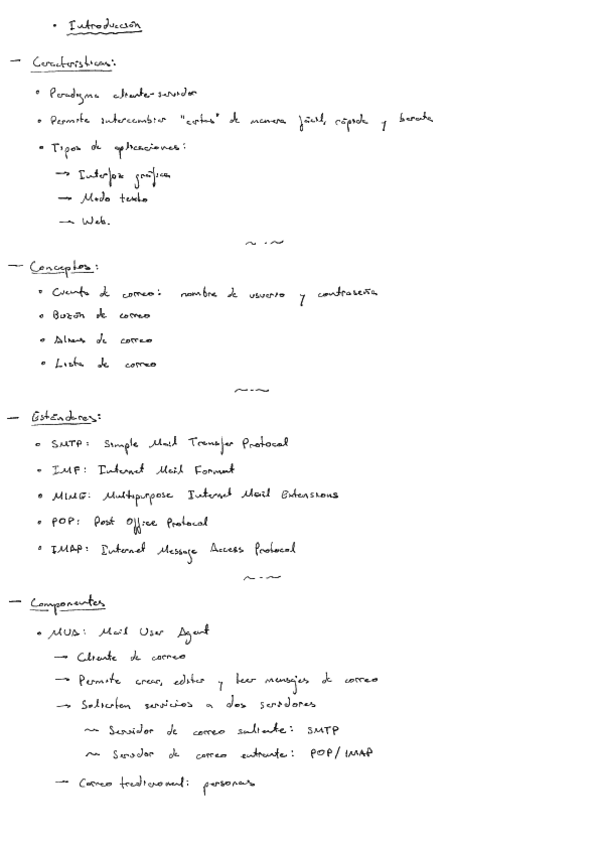 • Introducción
— Características:
• Paradigma cliente-servidor
• Permite intercambiar "cartas" de manera fácil, rápida y barata
• Tipos de aplicaciones:
→ Interfaz gráfica
→ Modo texto
→ Web.
~·~
— Conceptos:
• Cuenta de correo: nombre de usuario y contraseña
• Buzón de correo
• Alias de correo
• Lista de correo
~·~
— Estándares:
• SMTP: Simple Mail Transfer Protocol
• IMF: Internet Mail Format
• MIME: Multipurpose Internet Mail Extensions
• POP: Post Office Protocol
• IMAP: Internet Message Access Protocol
~·~
— Componentes
• MUA: Mail User Agent
→ Cliente de correo
→ Permite crear, editar y leer mensajes de correo
→ Solicitan servicios a dos servidores
~ Servidor de correo saliente: SMTP
~ Servidor de correo entrante: POP/IMAP
→ Correo tradicional: personas